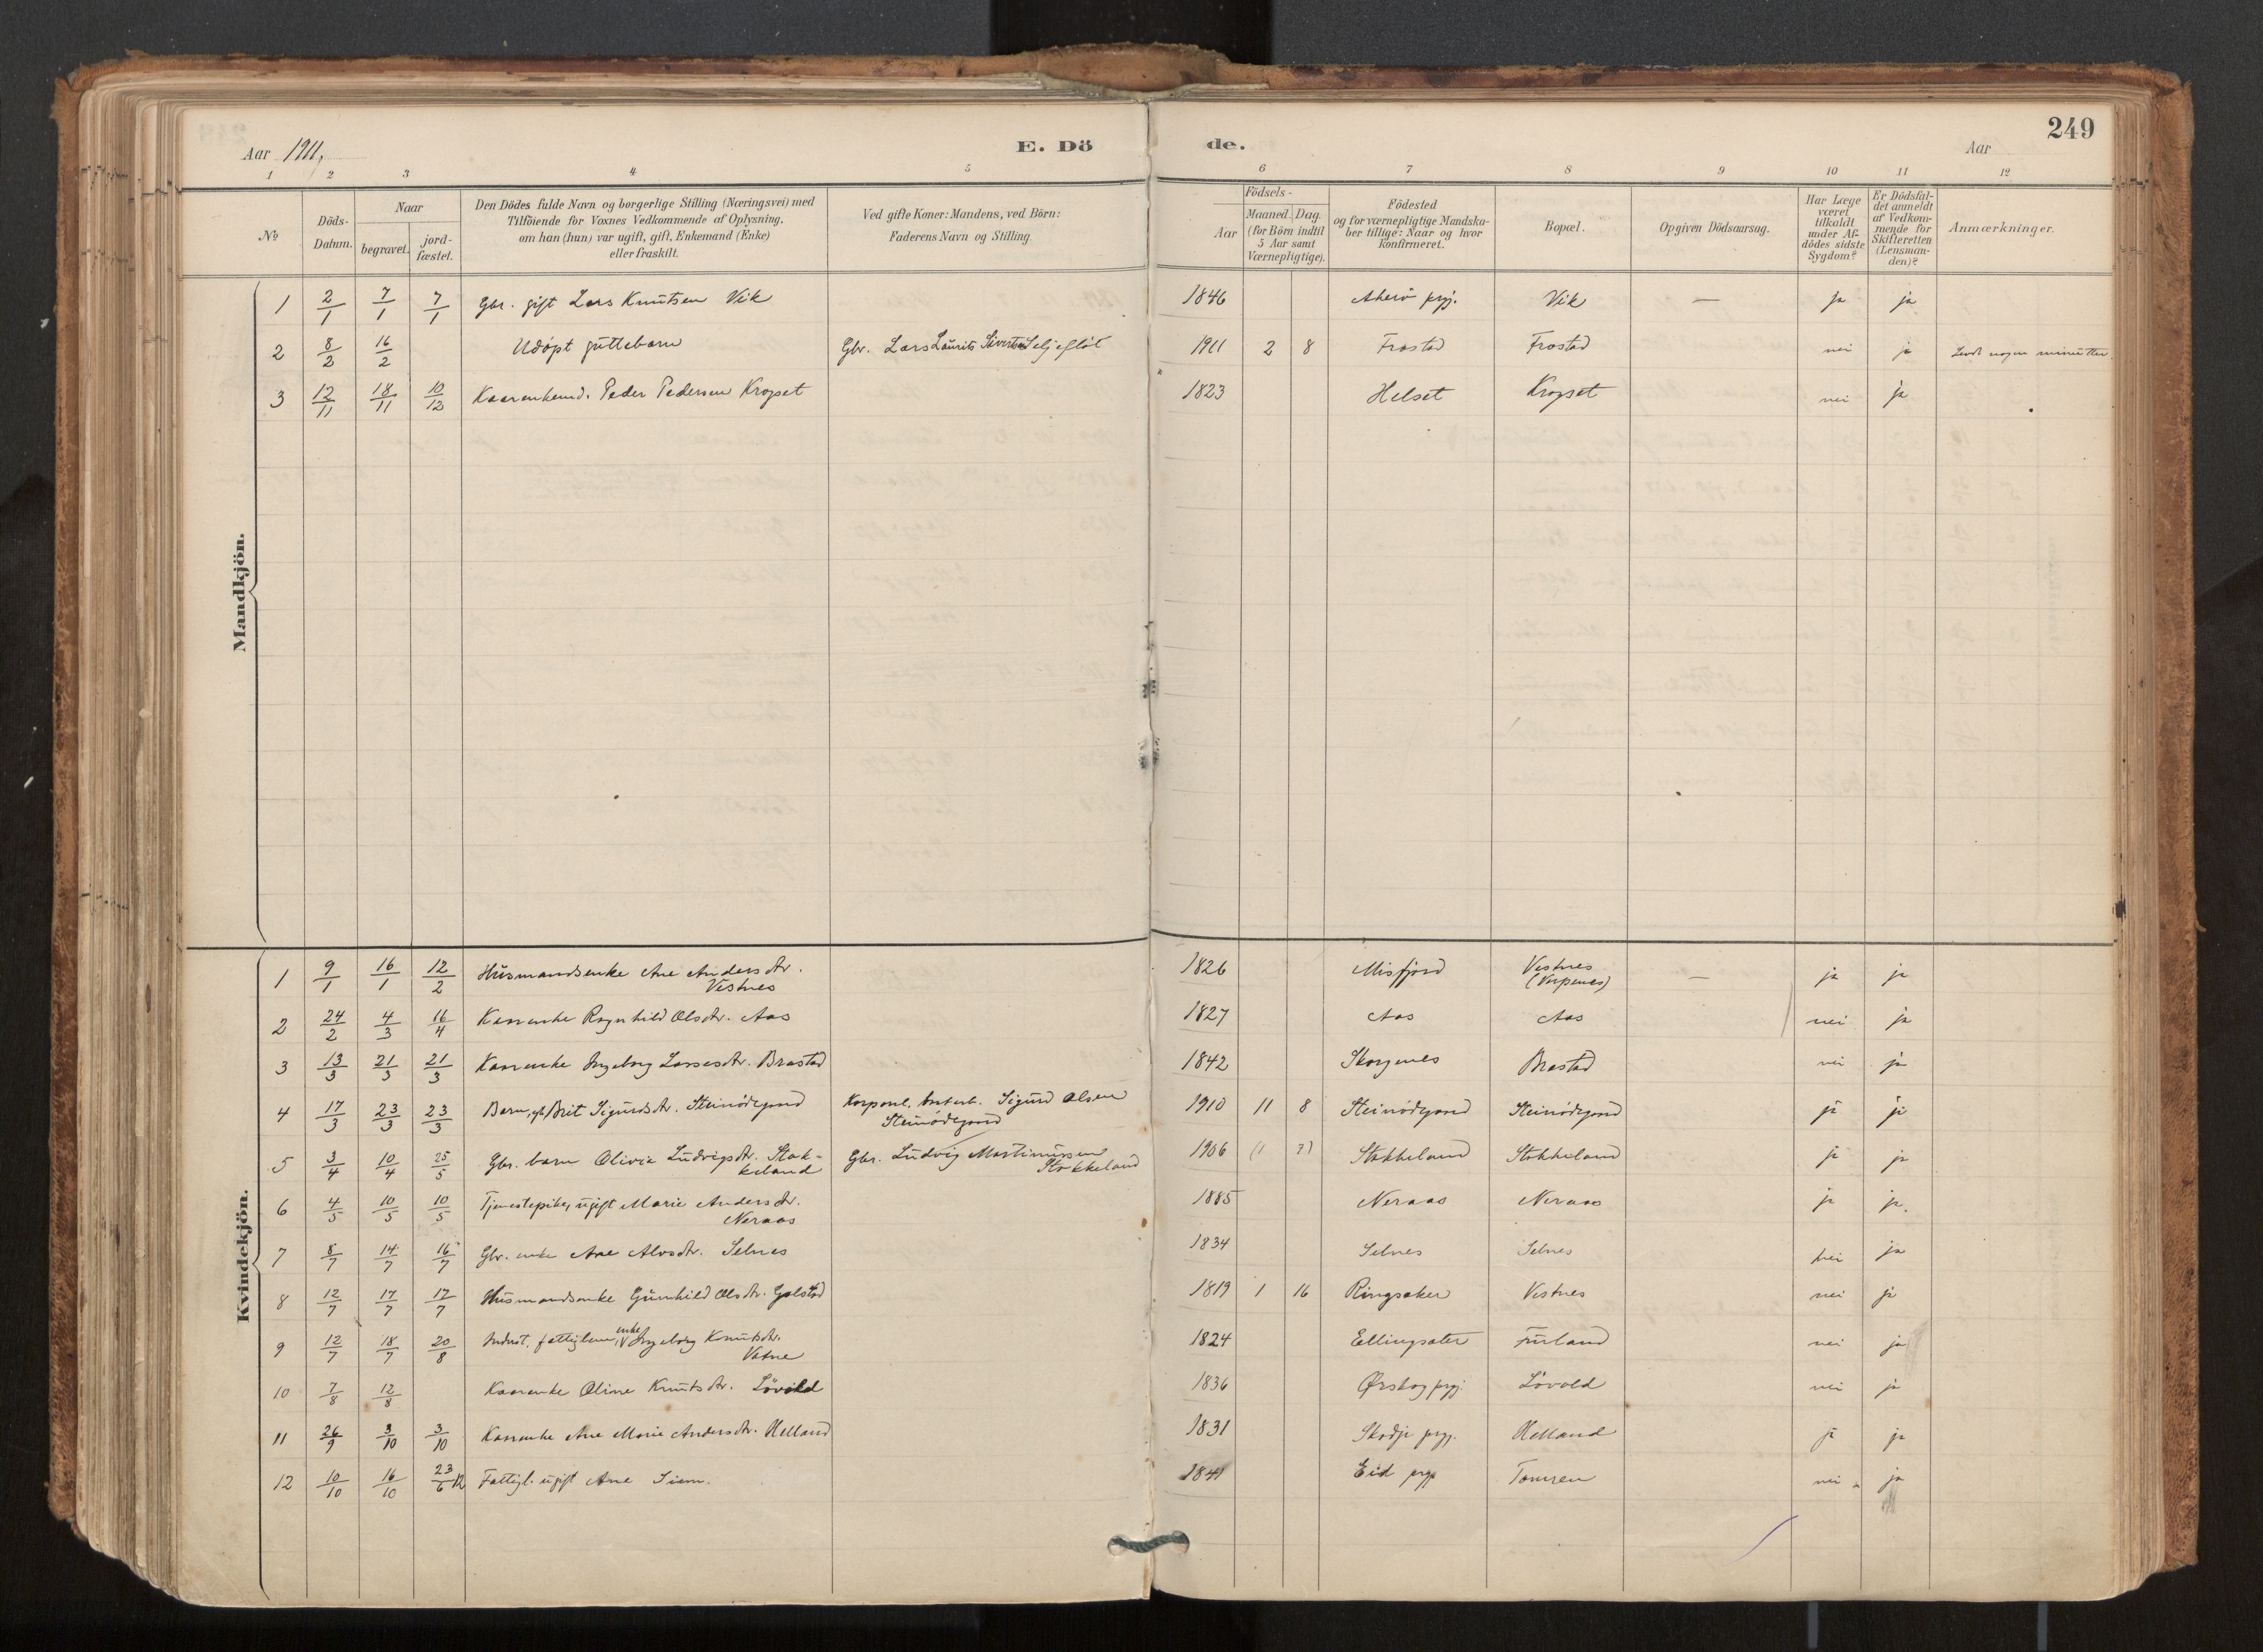 249
Aar 1911,
E. Dö de.
Aar
1 2 3 4 5 6 7 8 9 10 11 12
No
Döds-Datum.
Naar
begravet.
jord-fæstet.
Den Dödes fulde Navn og borgerlige Stilling (Næringsvei) med
Tilföiende for Voxnes Vedkommende af Oplysning,
om han (hun) var ugift, gift, Enkemand (Enke)
eller fraskilt.
Ved gifte Koner: Mandens, ved Börn:
Faderens Navn og Stilling.
Födsels-
Aar
Maaned. Dag.
(for Börn indtil
5 Aar samt
Værnepligtige).
Födested
og for værnepligtige Mandska-
ber tillige: Naar og hvor
konfirmeret.
Bopæl.
Opgiven Dödsaarsag.
Har Læge
været
tilkaldt
under Af-
dödes sidste
Sygdom?
Er Dödsfal-
det anmeldt
af Vedkom-
mende for
Skifteretten
(Lensman-
den)?
Anmærkninger.
Mandkjön.
1 2/1 7/1 7/1 Gbr. gift Lars Knutsen Vik 1846 Akerö prgj. Vik — ja ja
2 8/2 16/2 Udøpt guttebarn Gbr. Lars Laurits Sivertsen Seljeflot 1911 2 8 Frostad Frostad nei ja Levde nogen minutter.
3 12/11 18/11 10/12 Kaarenkemd. Peder Pedersen Kropset 1823 Helset Kropset nei ja
Kvindekjön.
1 9/1 16/1 12/2 Husmandsenke Ane Andersdtr. 1826 Misfjord Vestnes — ja ja
Vestnes (Vorpenes)
2 24/2 4/3 16/4 Kaarenke Ragnhild Olsdtr. Aas 1827 Aas Aas nei ja
3 13/3 21/3 21/3 Kaarenke Ingeborg Lassesdtr. Brastad 1842 Skorgenes Brastad nei ja
4 17/3 23/3 23/3 Barn, Brit Sigurdsdtr. Steinödegaard Korporal, Sigurd Olsen 1910 11 8 Steinödegaard Steinödegaard ja ja
Steinödegaard
5 3/4 10/4 25/5 Gbr. barn Olivia Ludvigsdtr. Stok- Gbr. Ludvig Martinussen 1906 Stokkeland Stokkeland ja ja
keland Stokkeland
6 4/5 10/5 10/5 Tjenestepike, ugift Marie Andersdtr. 1885 Neraas Neraas ja ja.
Neraas
7 8/7 14/7 16/7 Gbr. enke Ane Alvsdtr. Selnes 1834 Selnes Selnes nei ja
8 12/7 17/7 17/7 Husmandsenke Gunhild Olsdtr. Galstad 1819 1 16 Ringsaker Vestnes nei ja
9 12/7 18/7 20/8 Inderst, fattiglem, enke Ingeborg Knutsdtr. 1824 Ellingsæter Furland nei ja
Vatne
10 7/8 12/8 Kaarenke Oline Knutsdtr. Lövold 1836 Ørskog prgj. Lövold nei ja
11 26/9 3/10 3/10 Kaarenke Ane Marie Andersdtr. Helland 1831 Skodje prgj. Helland ja ja
12 10/10 16/10 23/6 12 Fattigl. ugift Ane Siem. 1841 Eid prgj. Tomren nei ja